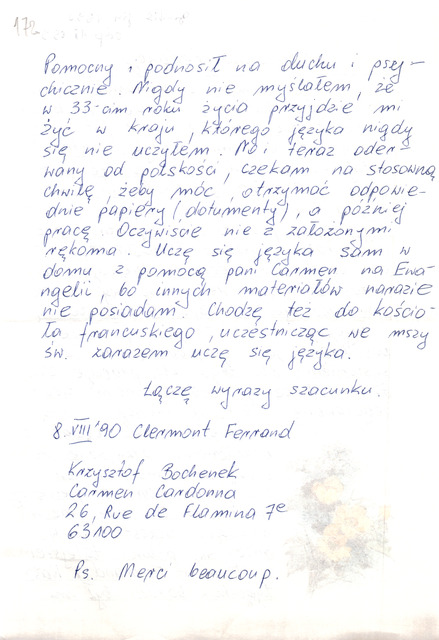 172
Pomocny i podnosił na duchu i psy-
chicznie. Nigdy nie myślałem, że
w 33-cim roku życia przyjdzie mi
żyć w kraju, którego języka nigdy
się nie uczyłem. No i teraz oder-
wany od polskości, czekam na stosowną
chwilę, żeby móc, otrzymać odpowie-
dnie papiery (dotumenty), a później
pracę. Oczywiscie nie z założonymi
rękoma. Uczę się języka sam w
domu z pomocą pani Carmen na Ewa-
ngelii, bo innych materiałów narazie
nie posiadam. Chodzę też do kościo-
ła francuskiego, uczestnicząc we mszy
św. zarazem uczę się języka.
Łączę wyrazy szacunku.
8.VIII'90 Clermont Ferrand
Krzysztof Bochenek
Carmen Cardonna
26, Rue de Flamina 7e
63100
Ps. Merci beaucoup.